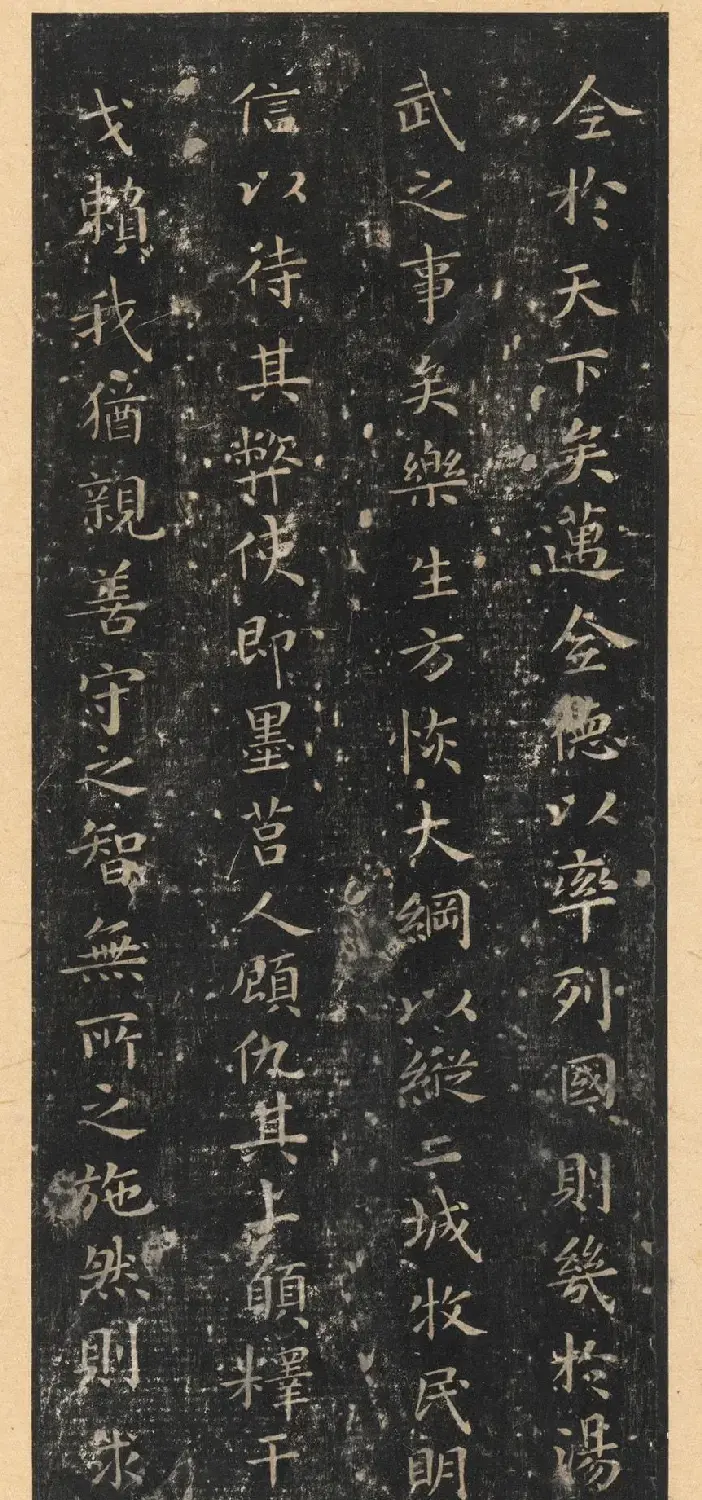 全於天下矣邁全德以率列國則幾於湯
武之事矣樂生方恢大綱以縱二城牧民明
信以待其弊使即墨莒人顧仇其上願釋干
戈賴我猶親善守之智無所之施然則求